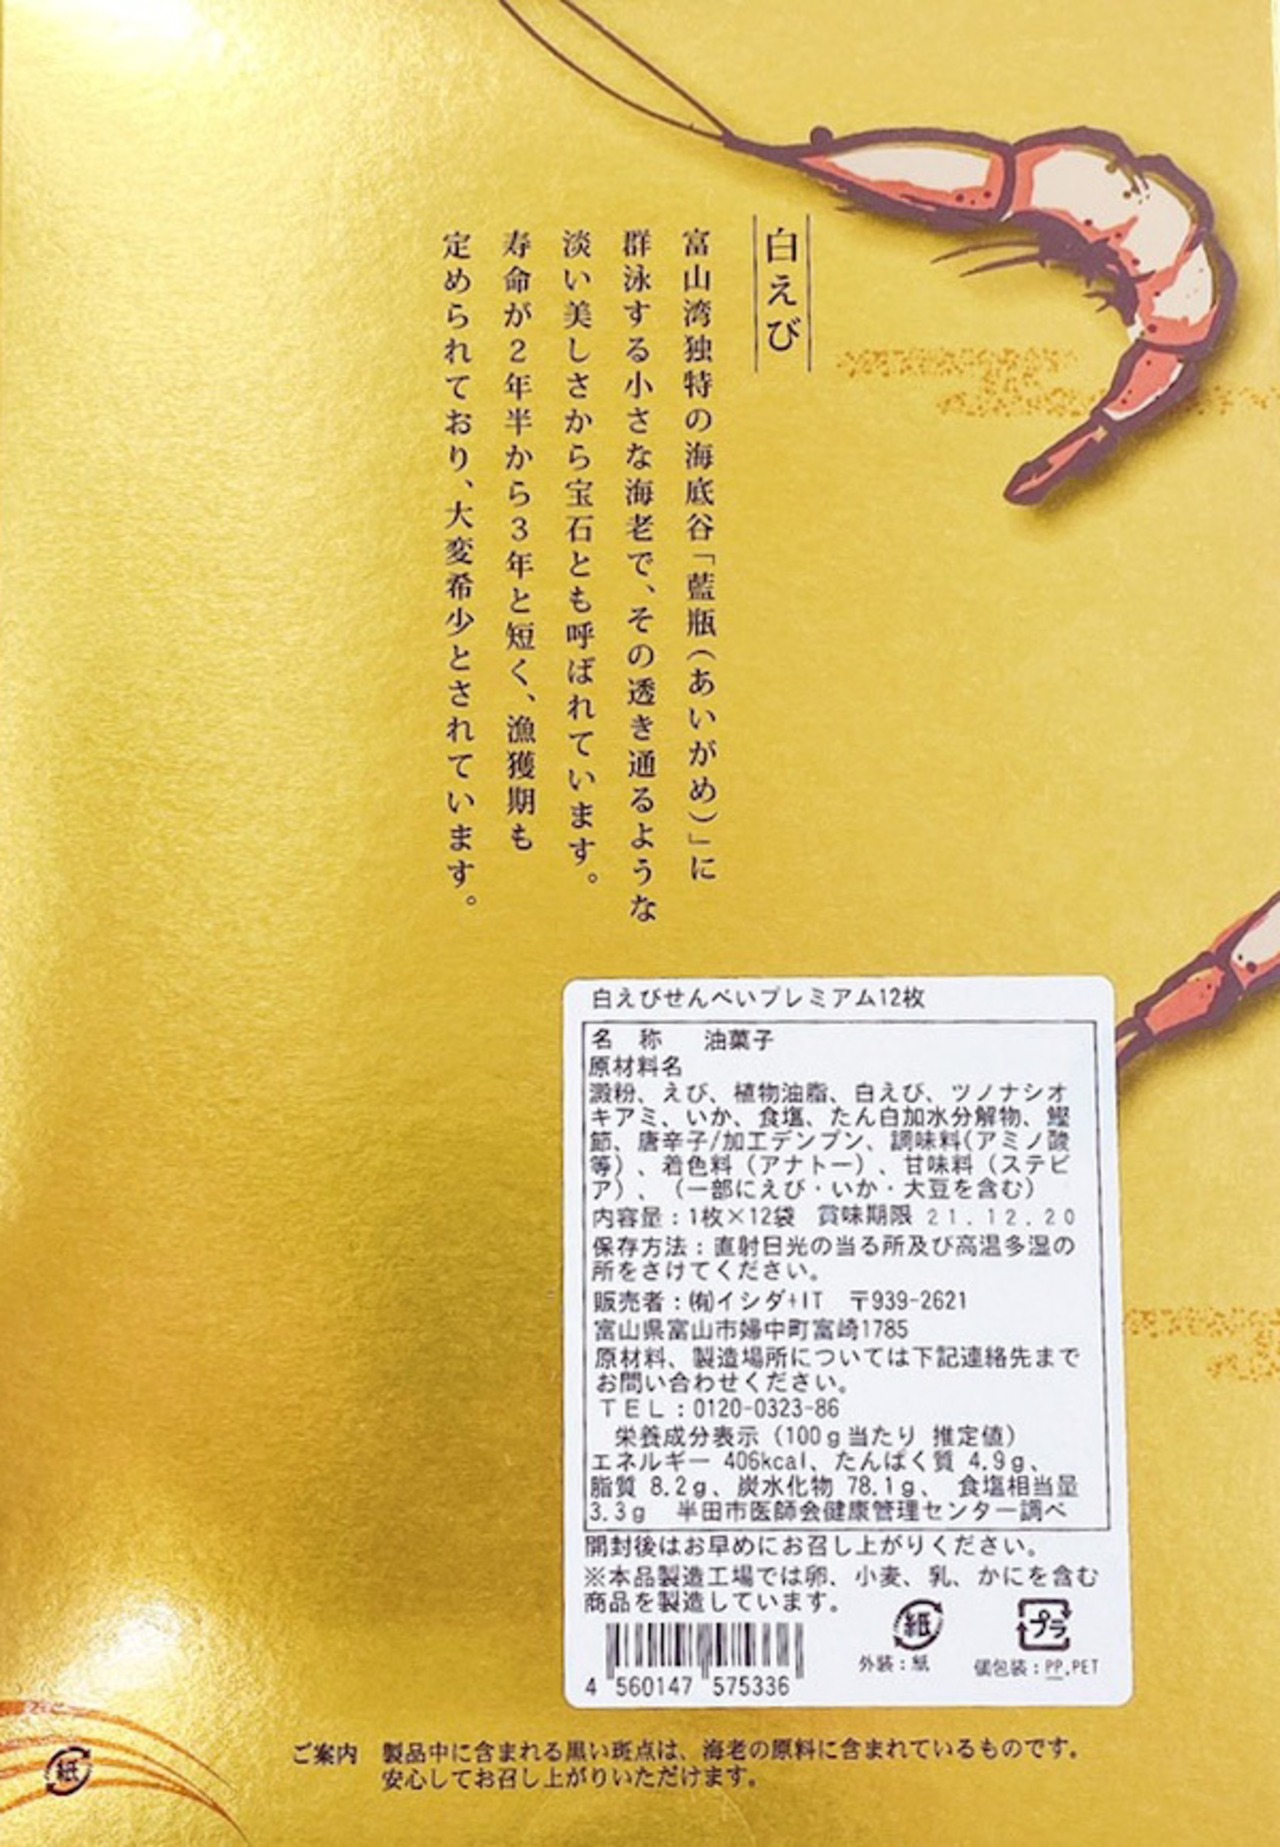 白えび
富山湾独特の海底谷「藍瓶(あいがめ)」に
群泳する小さな海老で、その透き通るような
淡い美しさから宝石とも呼ばれています。
寿命が2年半から3年と短く、漁獲期も
定められており、大変希少とされています。
白えびせんべいプレミアム12枚
名 称 油菓子
原材料名
澱粉、えび、植物油脂、白えび、ツノナシオ
キアミ、いか、食塩、たん白加水分解物、鰹
節、唐辛子/加工デンプン、調味料(アミノ酸
等)、着色料(アナトー)、甘味料(ステビ
ア)、(一部にえび・いか・大豆を含む)
内容量:1枚×12袋 賞味期限 21.12.20
保存方法:直射日光の当る所及び高温多湿の
所をさけてください。
販売者:㈲イシダ+IT 〒939-2621
富山県富山市婦中町富崎1785
原材料、製造場所については下記連絡先まで
お問い合わせください。
TEL:0120-0323-86
栄養成分表示(100g当たり 推定値)
エネルギー 406kcal、たんぱく質 4.9g、
脂質 8.2g、炭水化物 78.1g、 食塩相当量
3.3g 半田市医師会健康管理センター調べ
開封後はお早めにお召し上がりください。
※本品製造工場では卵、小麦、乳、かにを含む
商品を製造しています。
紙 プラ
外装:紙 個包装:PP.PET
4 560147 575336
紙
ご案内 製品中に含まれる黒い斑点は、海老の原料に含まれているものです。
安心してお召し上がりいただけます。